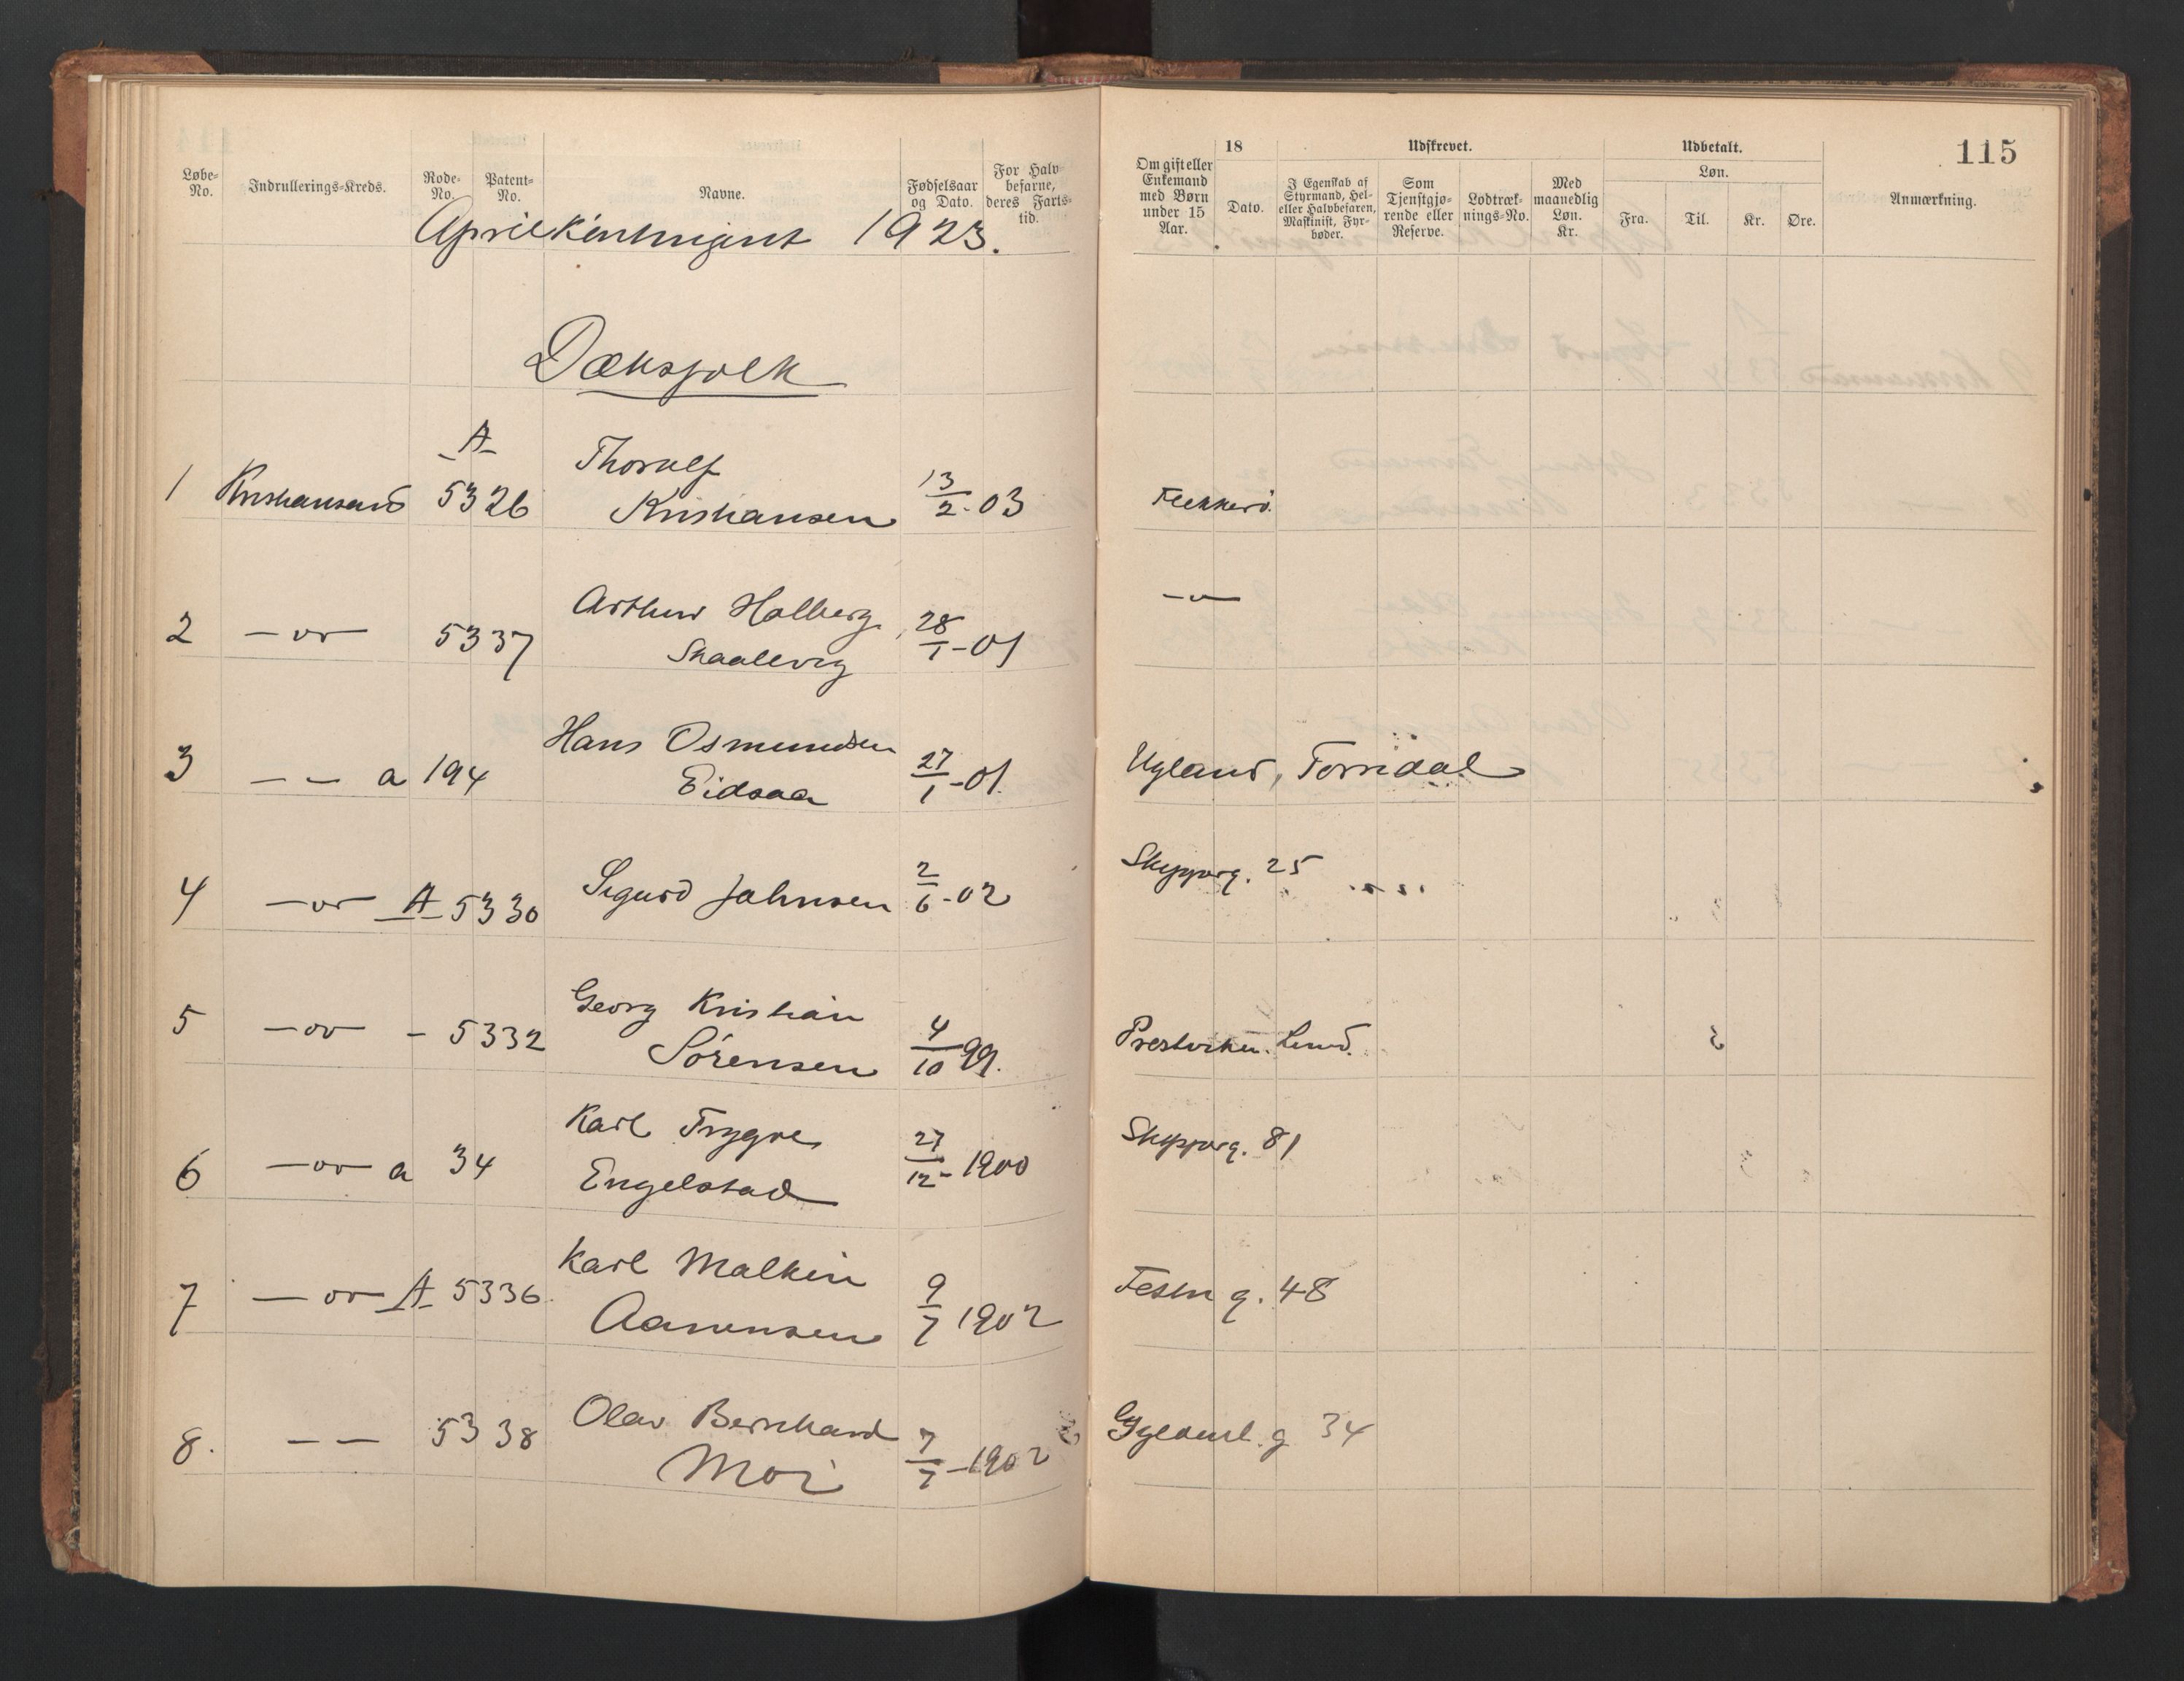 115
Løbe-No. Indrullerings-Kreds. Rode-No. Patent-No. Navne. Fødselsaar og Dato. For Halvbefarne, deres Fartstid.
Om gift eller Enkemand med Børn under 15 Aar. 18 Dato. Udskrevet. I Egenskab af Styrmand, Hel- eller Halvbefaren, Maskinist, Fyrbøder. Som Tjenstgjørende eller Reserve. Lodtræknings-No. Med maanedlig Løn. Kr. Udbetalt. Løn. Fra. Til. Kr. Øre. Anmærkning.
Aprilkontingent 1923.
Dæksfolk
A
1 Kristiansand 5326 Thorulf Kristiansen 13/2-03 Flekkerö.
2 —"— 5337 Arthur Holberg Skaalevig 28/1-01 —"—
3 — — a 194 Hans Osmundsen Eidsaa 27/1-01. Ugland, Torridal
4 —"— A 5330 Sigurd Johnsen 2/6-02 Skipperg. 25
5 —"— - 5332 Georg Kristian Sörensen 4/10 99. Prestviken. Lund.
6 —"— a 34 Karl Trygve Engelstad 27/12-1900 Skipperg. 81
7 —"— A 5336 Karl Malkin Aanensen 9/7 1902 Festn g. 48
8. — — 5338 Olav Bernhard Moi 7/7-1902 Gyldenl. g 34